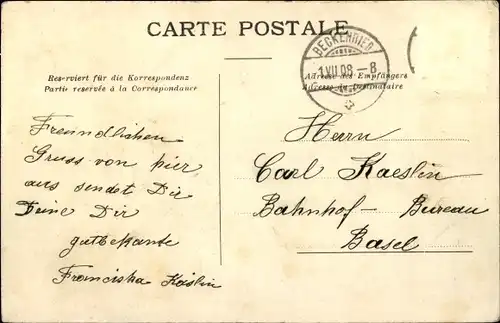 CARTE POSTALE
BECKENRIED
1.VII.08.-8
Reserviert für die Korrespondenz
Partie réservée à la Correspondance
Adresse des Empfängers
Adresse du Destinataire
Freundlichen
Gruss von hier
aus sendet Dir
Deine Dir
gutbekante
Franciska Käslin
Herrn
Carl Kaeslin
Bahnhof - Bureau
Basel